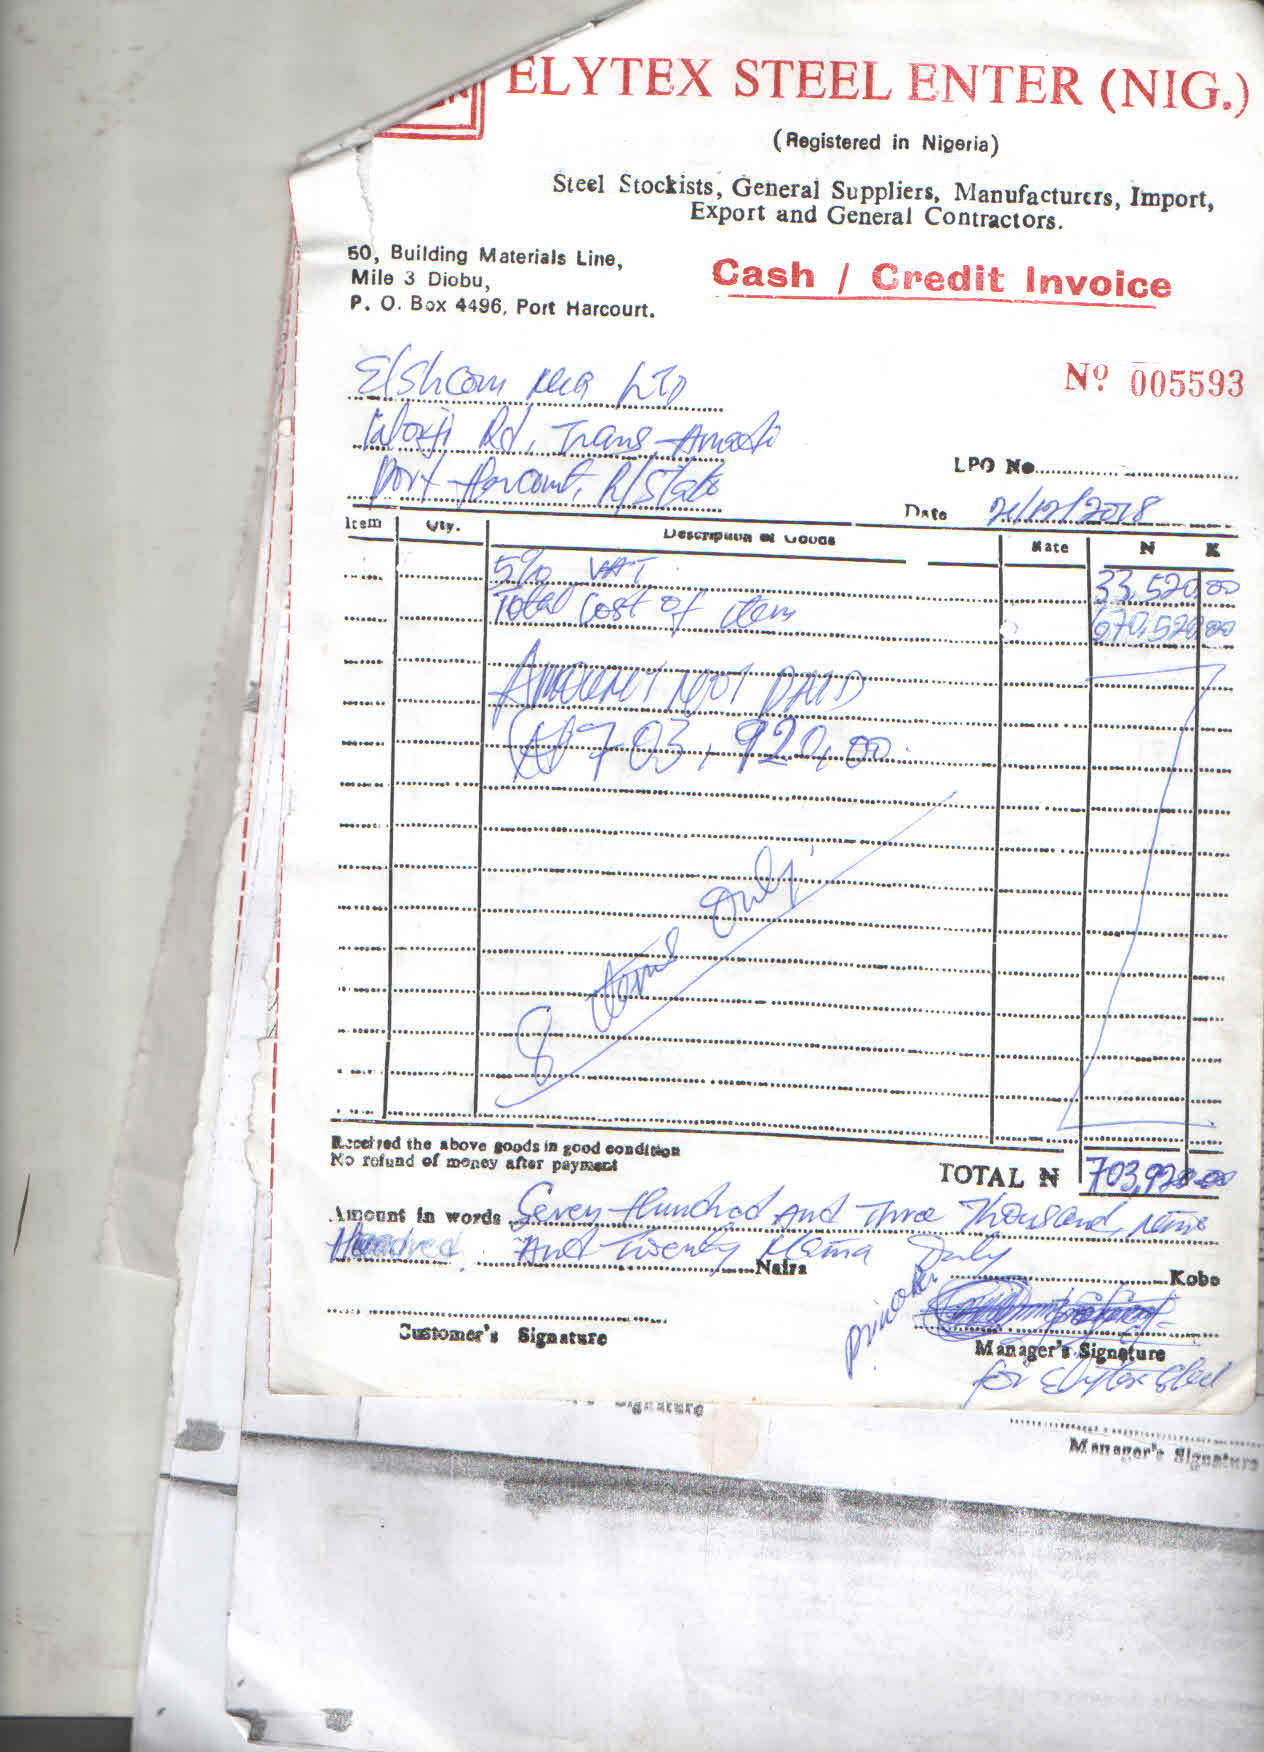 ELYTEX STEEL ENTER (NIG.)
(Registered in Nigeria)
Steel Stockists, General Suppliers, Manufacturers, Import,
Export and General Contractors.
50, Building Materials Line,
Mile 3 Diobu,
P. O. Box 4496, Port Harcourt.
Cash / Credit Invoice
Nº 005593
Elshcom Nig LTD
Woji Rd, Trans-Amadi
Port Harcourt, R/State
LPO No
Date 21/12/2018
Item Qty. Description of Goods Rate N K
5% VAT 33,520.00
Total Cost of item 670,520.00
Amount Not PAID
(₦703,920.00
8 items only
Received the above goods in good condition
No refund of money after payment
TOTAL ₦ 703,920.00
Amount in words Seven Hundred And Three Thousand, Nine
Hundred And Twenty Naira Only
Naira
Kobo
Customer's Signature
Manager's Signature
for Elytex Steel
Signature
Manager's Signature